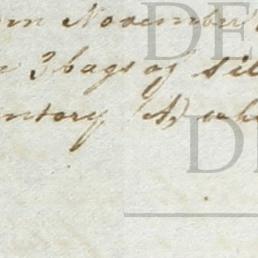 om November
3 bags of sil
entory (A) whe
DE
D